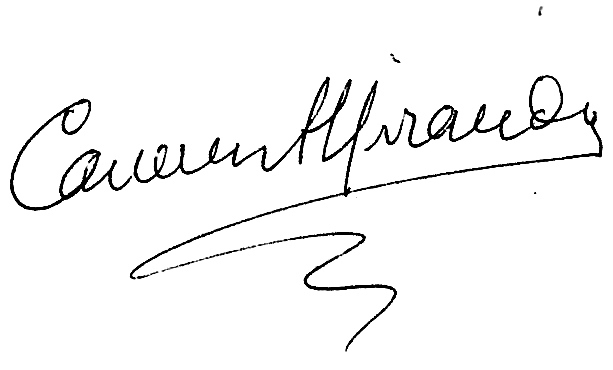 Carmen Miranda